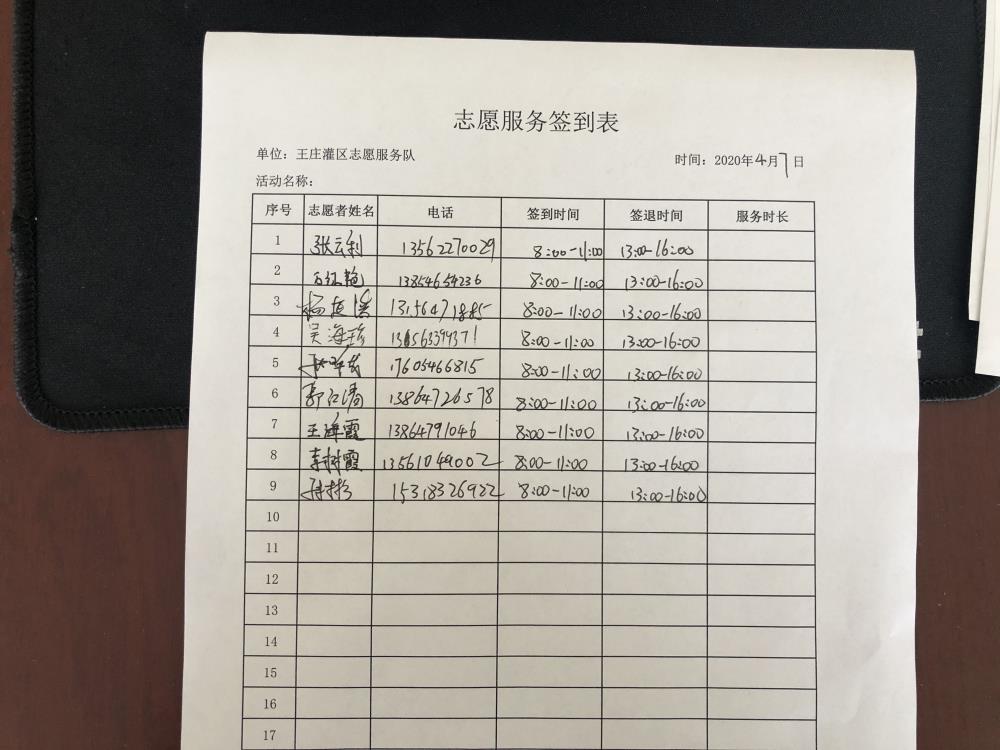 志愿服务签到表
单位：王庄灌区志愿服务队 时间：2020年4月7日
活动名称：
序号 志愿者姓名 电话 签到时间 签退时间 服务时长
1 张云利 13562270029 8:00-11:00 13:00-16:00
2 13854654236 8:00-11:00 13:00-16:00
3 杨 13156471885 8:00-11:00 13:00-16:00
4 吴海珍 8:00-11:00 13:00-16:00
5 17605466815 8:00-11:00 13:00-16:00
6 郭江涛 13864726578 8:00-11:00 13:00-16:00
7 王海霞 13864791046 8:00-11:00 13:00-16:00
8 李树霞 13561049002 8:00-11:00 13:00-16:00
9 15318326922 8:00-11:00 13:00-16:00
10
11
12
13
14
15
16
17